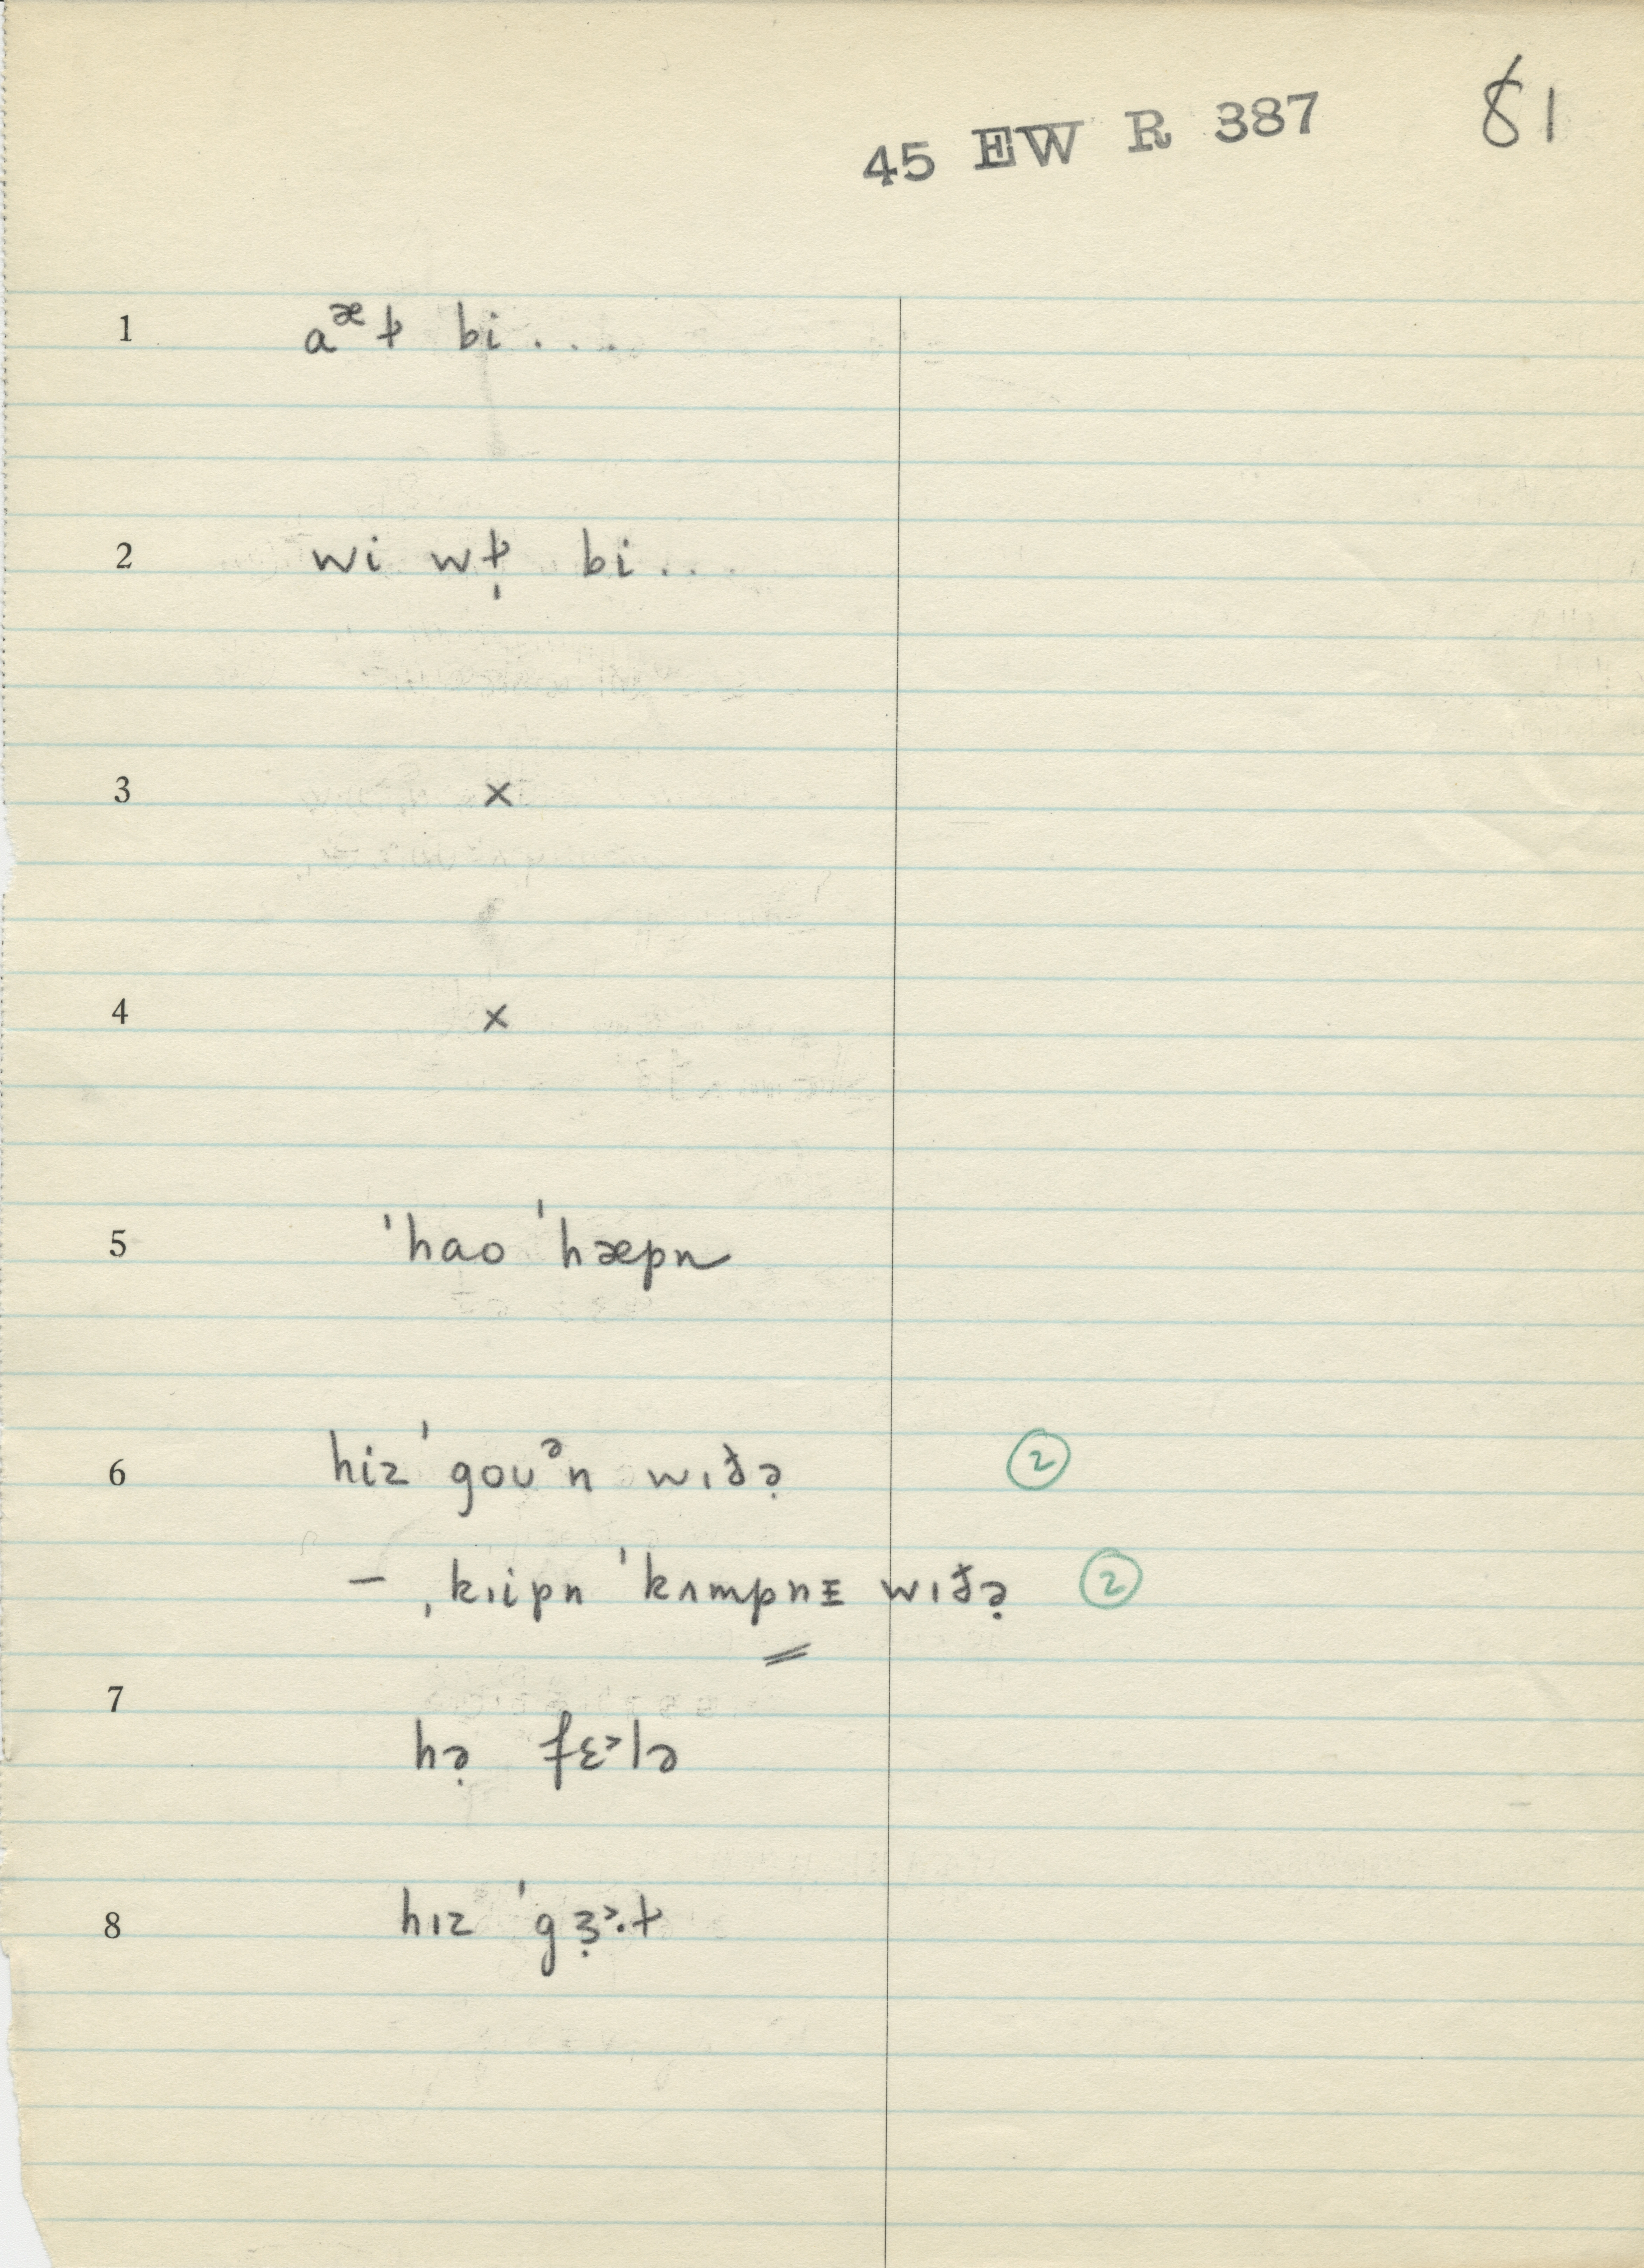 45 EW R 387 81
1 aᵆɫ bi . . .
2 wi wɫ̩ bi . . .
3 ×
4 ×
5 ˈhao ˈhæpn
6 hiz ˈgoʊᵊn wɪðə̣ ②
– ˌkɪipn ˈkʌmpnɪ wɪðə̣ ②
7
hə̣ fɛ˃lə
8 hɪz ˈgɜ̣˃·ɫ